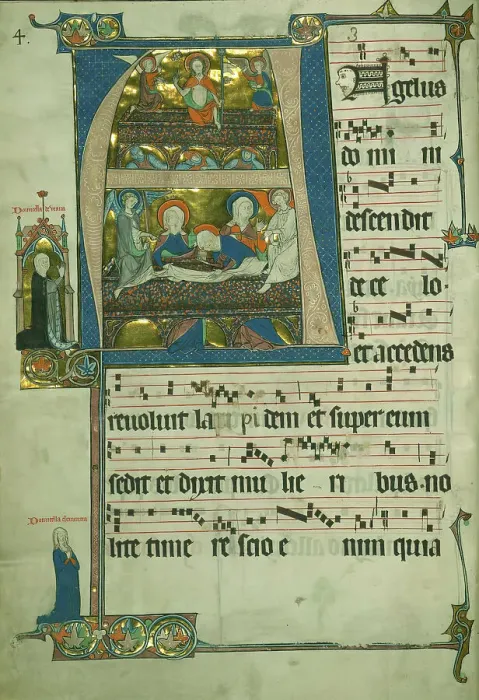 4.
3
ANgelus
do mi ni
descendit
de ce lo.
et accedens
revoluit la pi dem et super eum
sedit et dixit mu lie ri bus. no
lite time re scio e nim quia
Domicella
Domicella